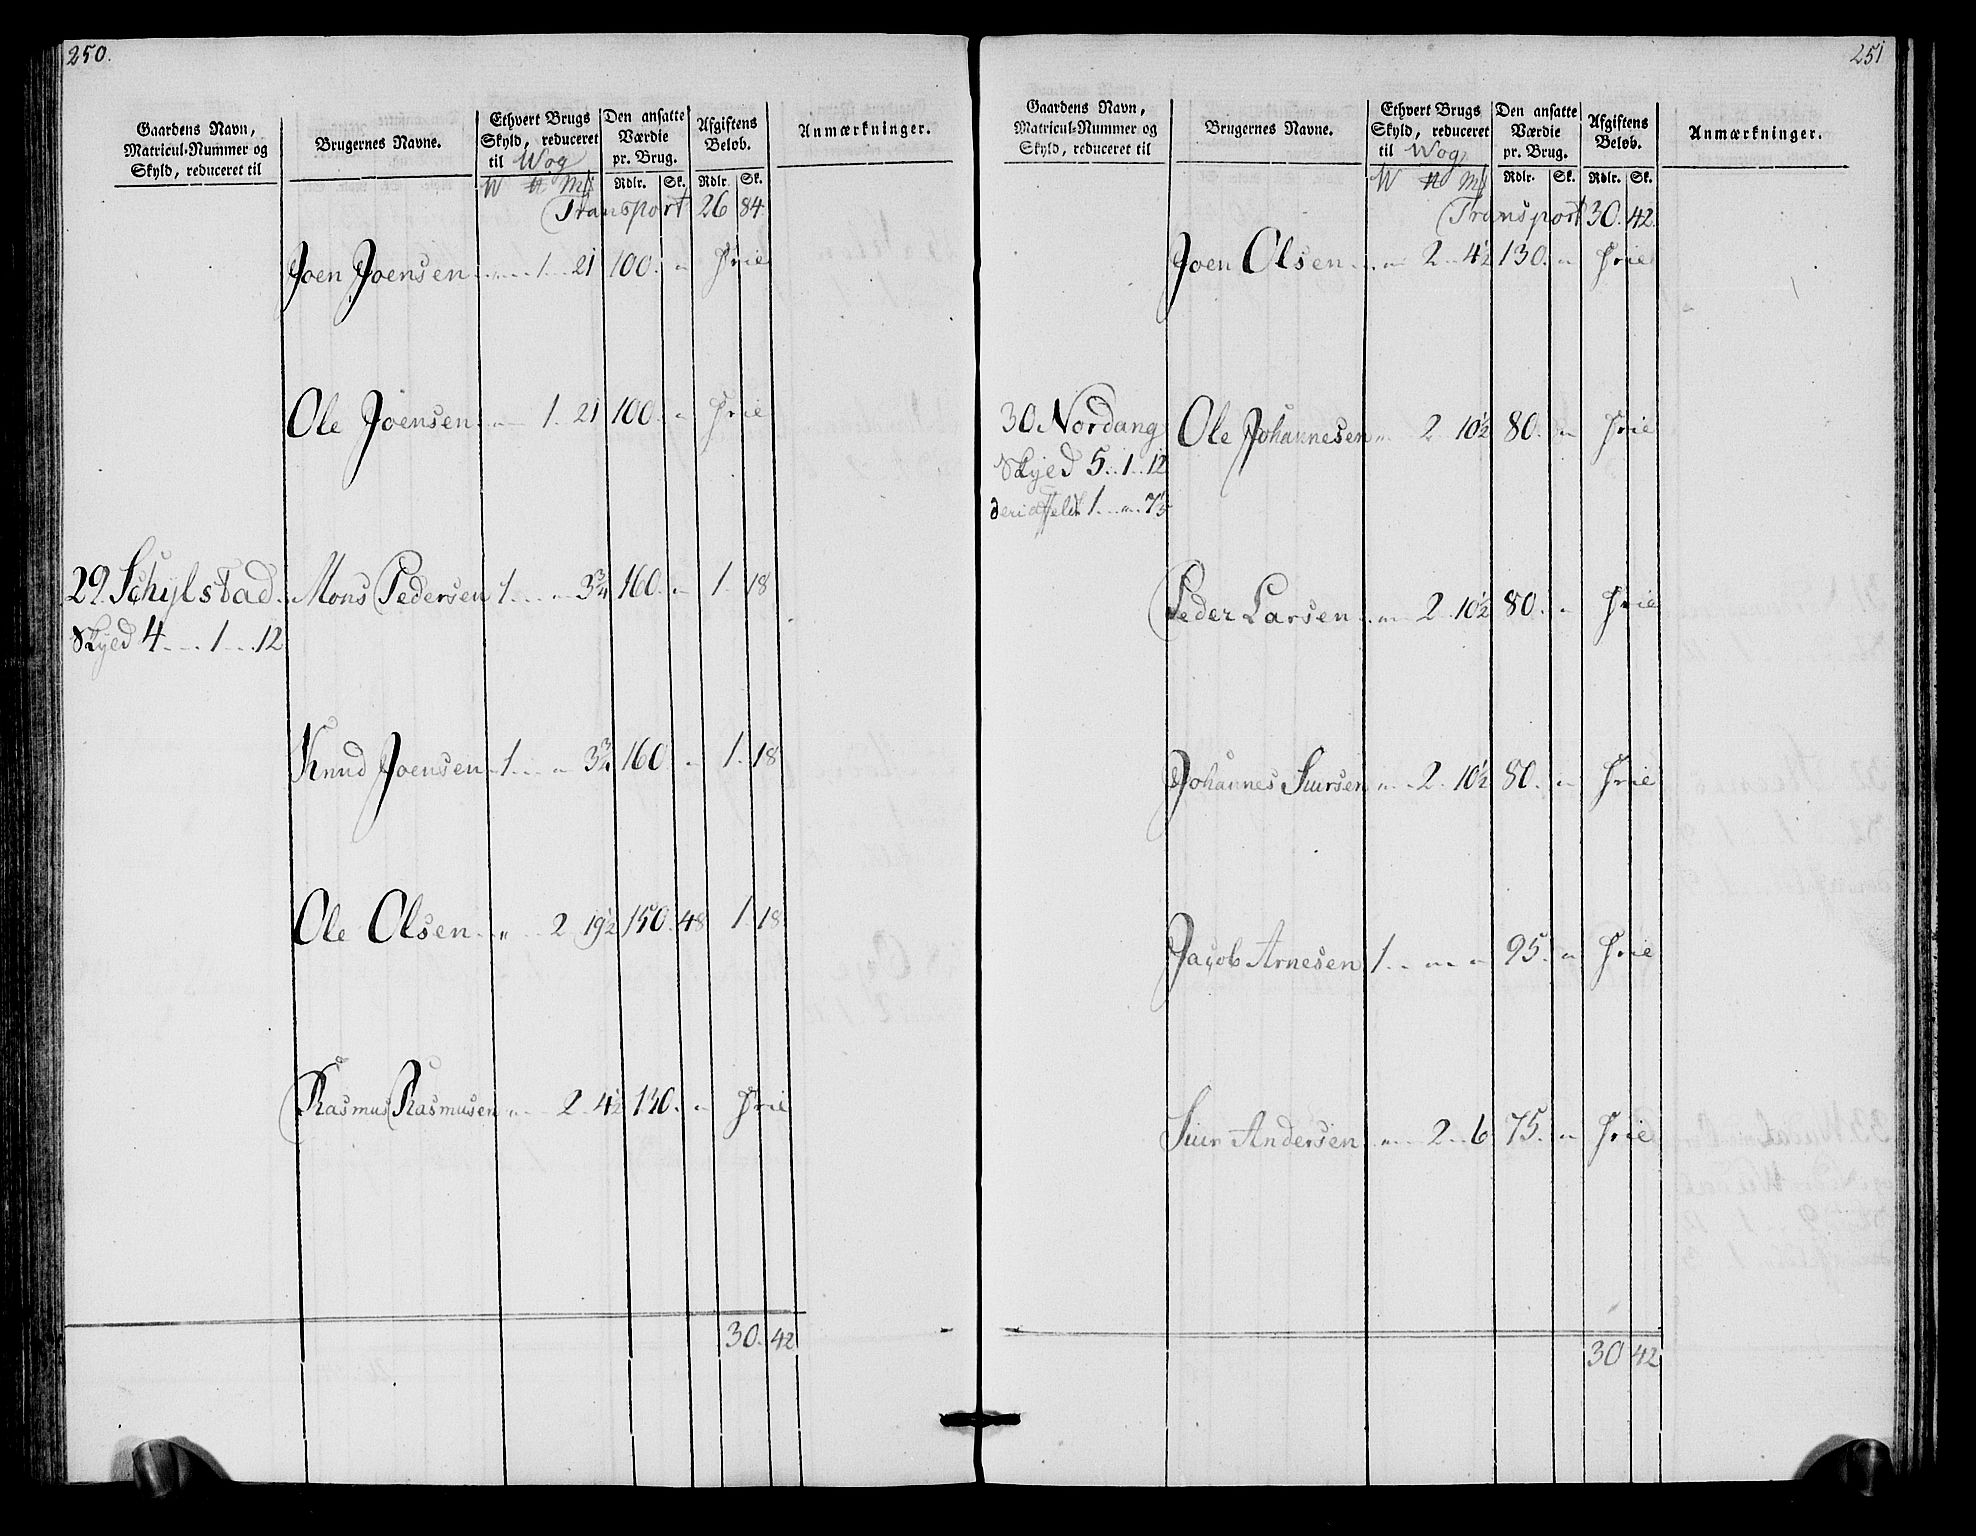 250.
Gaardens Navn, Matricul-Nummer og Skyld, reduceret til
Brugernes Navne.
Ethvert Brugs Skyld, reduceret til Wog
Den ansatte Værdie pr. Brug.
Afgiftens Beløb.
Anmærkninger.
W ℔ Mk Rdlr. Sk. Rdlr. Sk.
Transport 26 84
Joen Joensen 1 21 100 " frie
Ole Joensen " 1 21 100 " frie
29. Schylstad Mons Pedersen 1 " 3¾ 160 " 1 18
Skyld 4 1 12
Knud Joensen 1 " 3¾ 160 " 1 18
Ole Olsen " 2 19½ 150 48 1 18
Rasmus Rasmusen " 2 4½ 140 " frie
30. 42
251
Gaardens Navn, Matricul-Nummer og Skyld, reduceret til
Brugernes Navne.
Ethvert Brugs Skyld, reduceret til Wog
Den ansatte Værdie pr. Brug.
Afgiftens Beløb.
Anmærkninger.
W ℔ Mk Rdlr. Sk. Rdlr. Sk.
Transport 30. 42.
Joen Olsen " 2 4½ 130. " frie
30. Nordang Ole Johannesen " 2 10½ 80. " frie
Skyld 5 1 12
1 "
Peder Larsen " 2 10½ 80. " frie
Johannes Siursen " 2 10½ 80. " frie
Jacob Arnesen 1 " " 95. " frie
Siur Andersen " 2 6 75. " frie
30 42